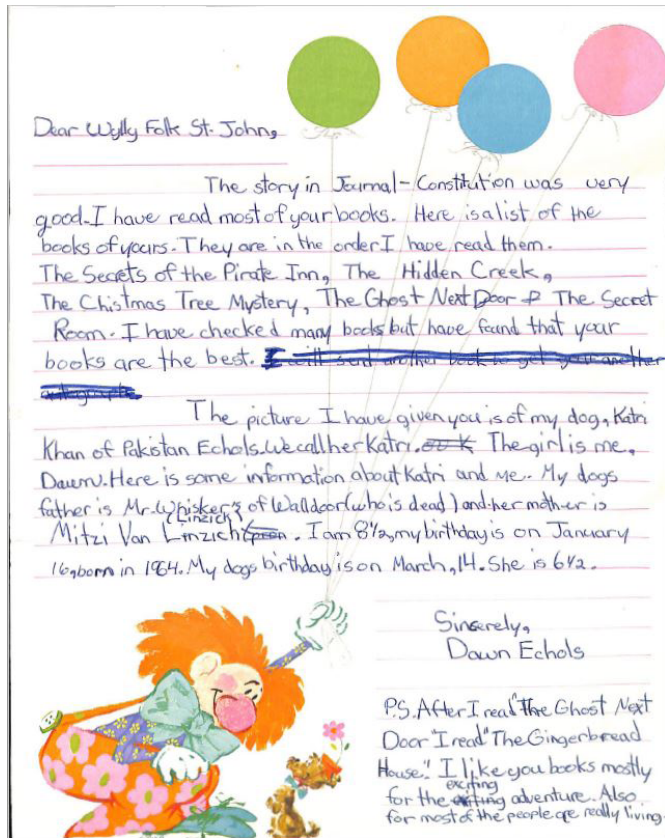 Dear Wylly Folk St. John,
The story in Journal-Constitution was very
good. I have read most of your books. Here is a list of the
books of yours. They are in the order I have read them.
The Secrets of the Pirate Inn, The Hidden Creek,
The Chistmas Tree Mystery, The Ghost Next Door & The Secret
Room. I have checked many books but have found that your
books are the best. I will sent another book to get your another
autograph.
The picture I have given you is of my dog, Katri
Khan of Pakistan Echols. We call her Katri. The girl is me,
Dawn. Here is some information about Katri and me. My dogs
father is Mr. Whiskers of Walldoor (who is dead) and her mother is
(Linzich)
Mitzi Van Linzich. I am 8 1/2, my birthday is on January
16, born in 1964. My dogs birthday is on March, 14. She is 6 1/2.
Sincerely,
Dawn Echols
P.S. After I read "The Ghost Next
Door" I read "The Gingerbread
House." I like you books mostly
exciting
for the adventure. Also
for most of the people are really living